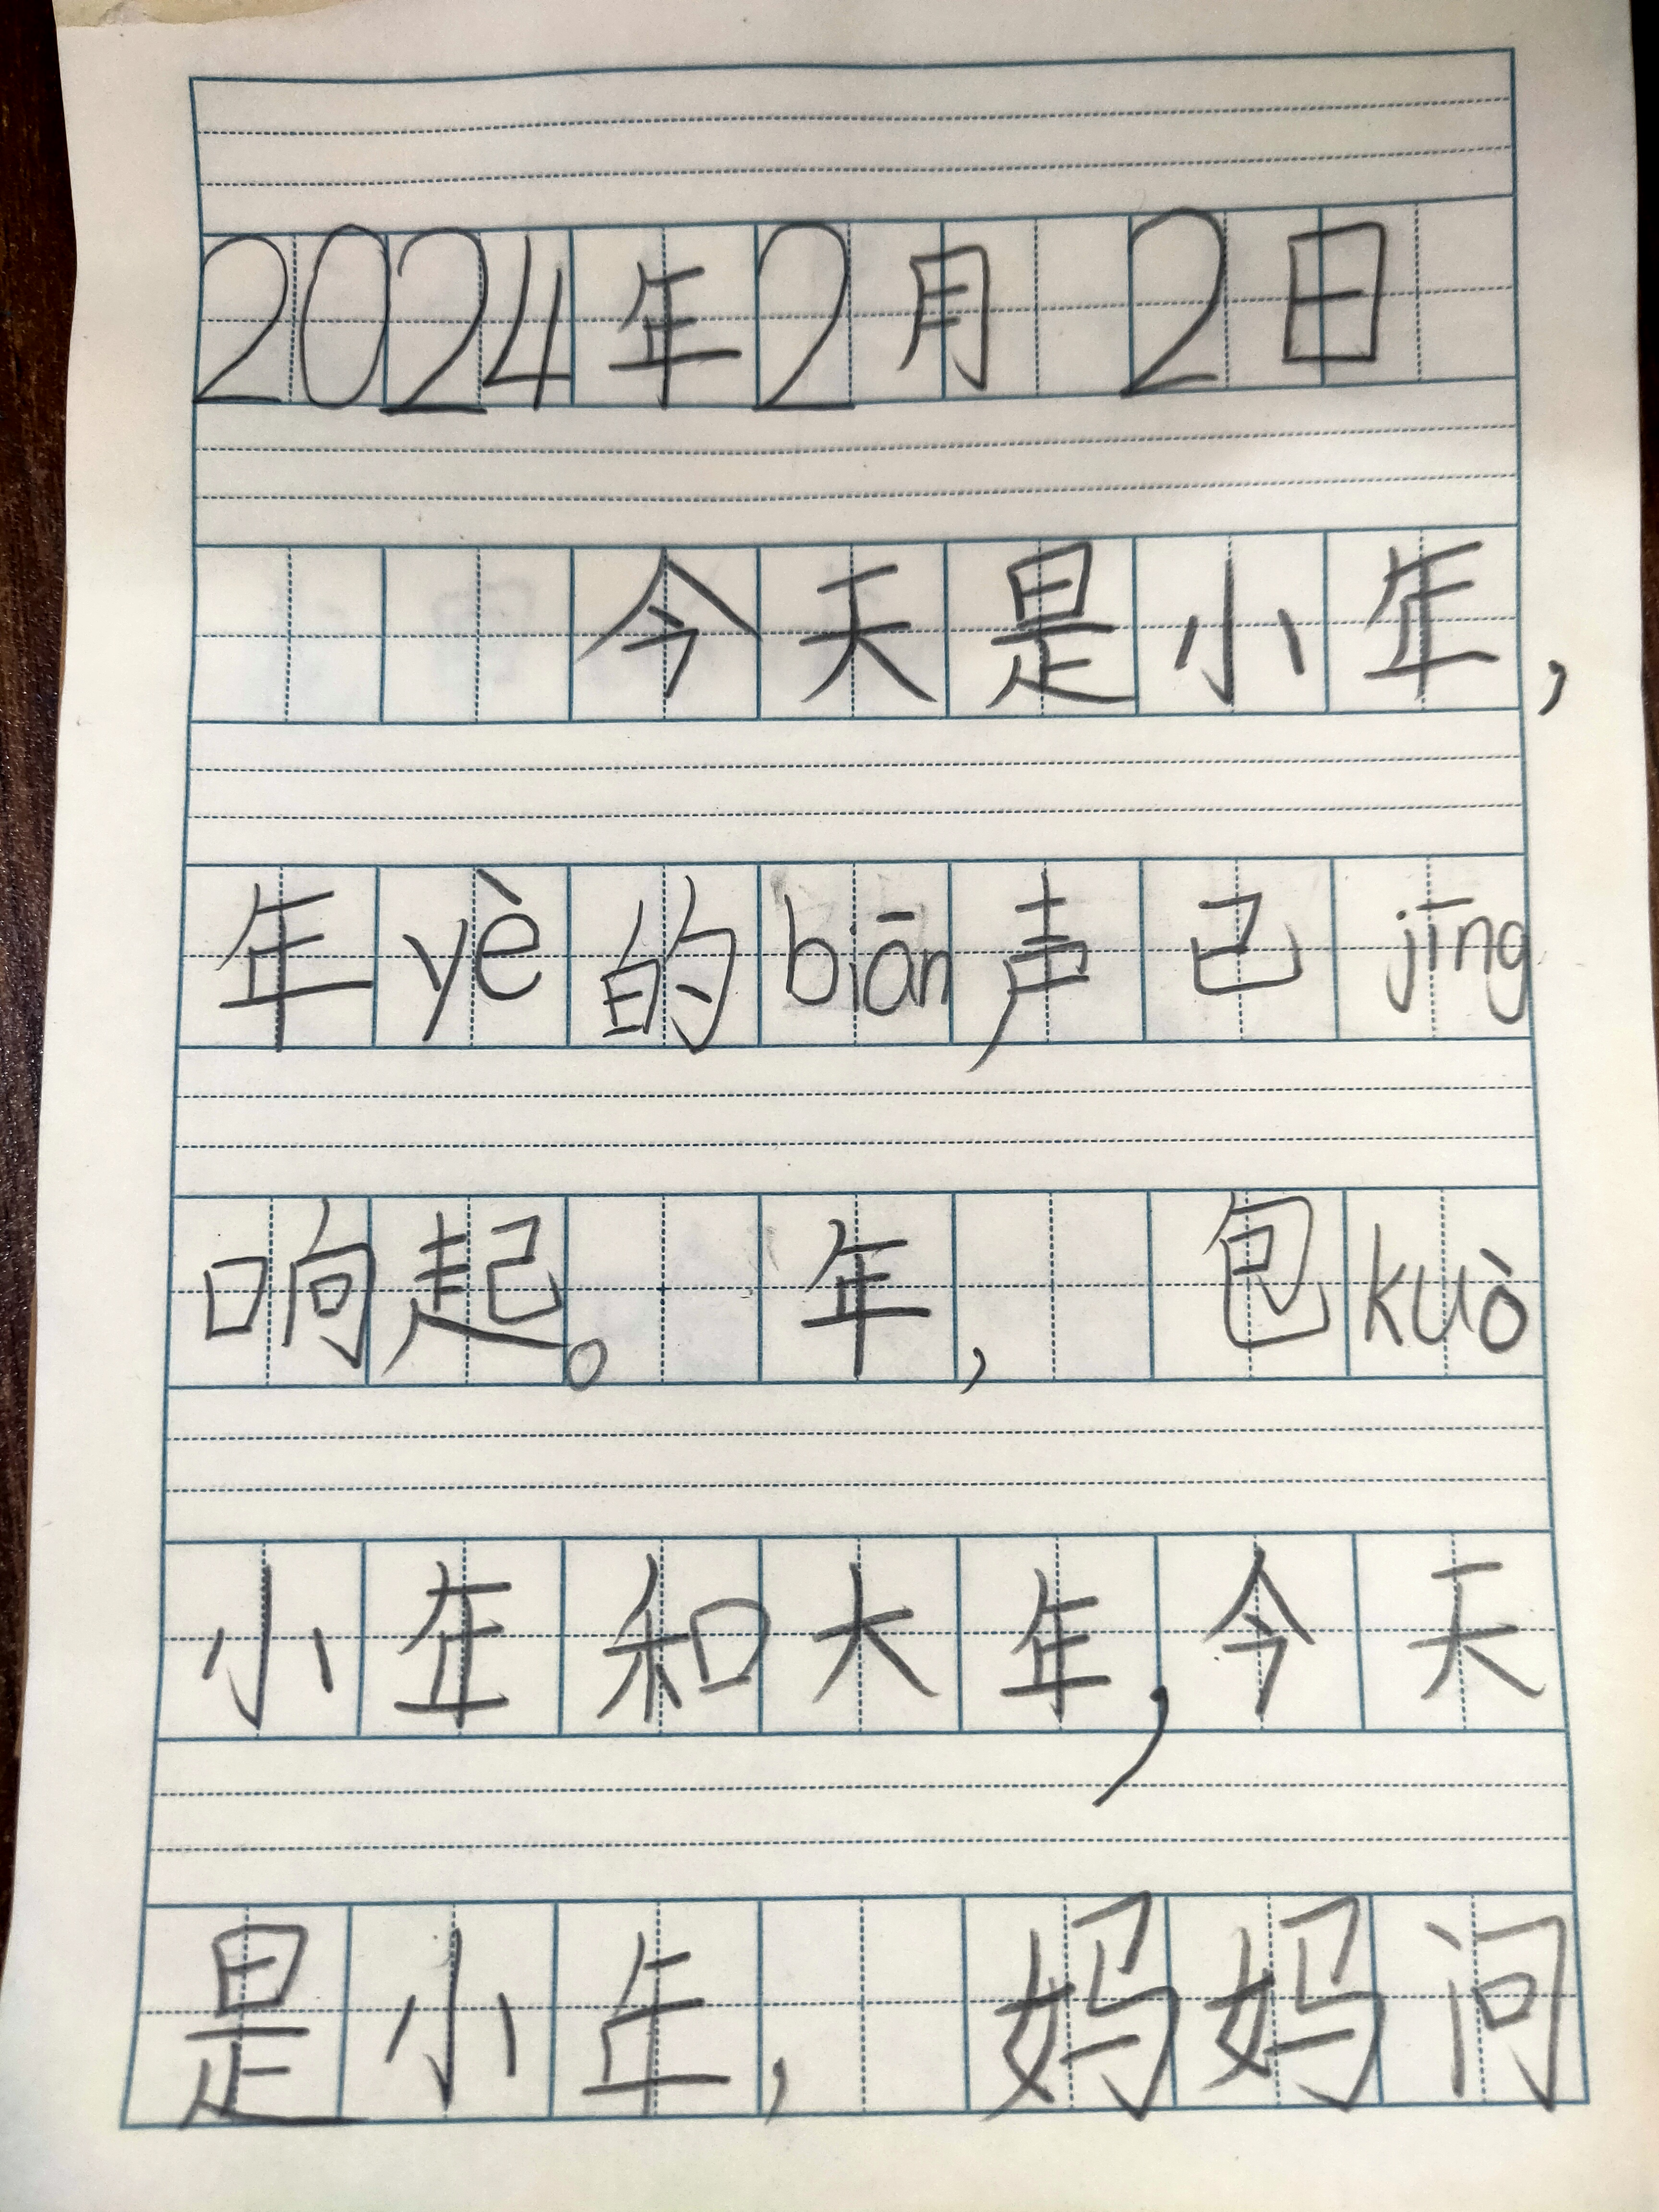 2024年2月2日
今天是小年，
年yè的biān声已jīng
响起。 年， 包kuò
小年和大年，今天
是小年， 妈妈问